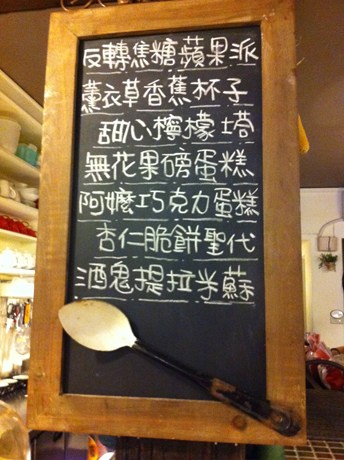 反轉焦糖蘋果派
薰衣草香蕉杯子
甜心檸檬塔
無花果磅蛋糕
阿嬤巧克力蛋糕
杏仁脆餅聖代
酒鬼提拉米蘇